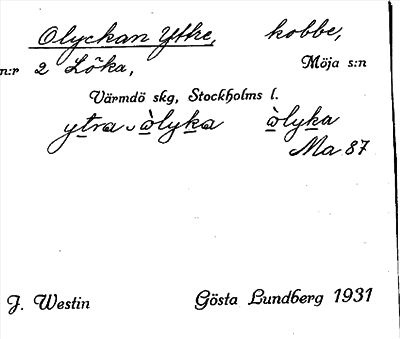 Olyckan Yttre, kobbe,
n:r 2 Löka, Möja s:n
Värmdö skg, Stockholms l.
ytra ὸlyka ὸlyka
Ma 87
J. Westin Gösta Lundberg 1931